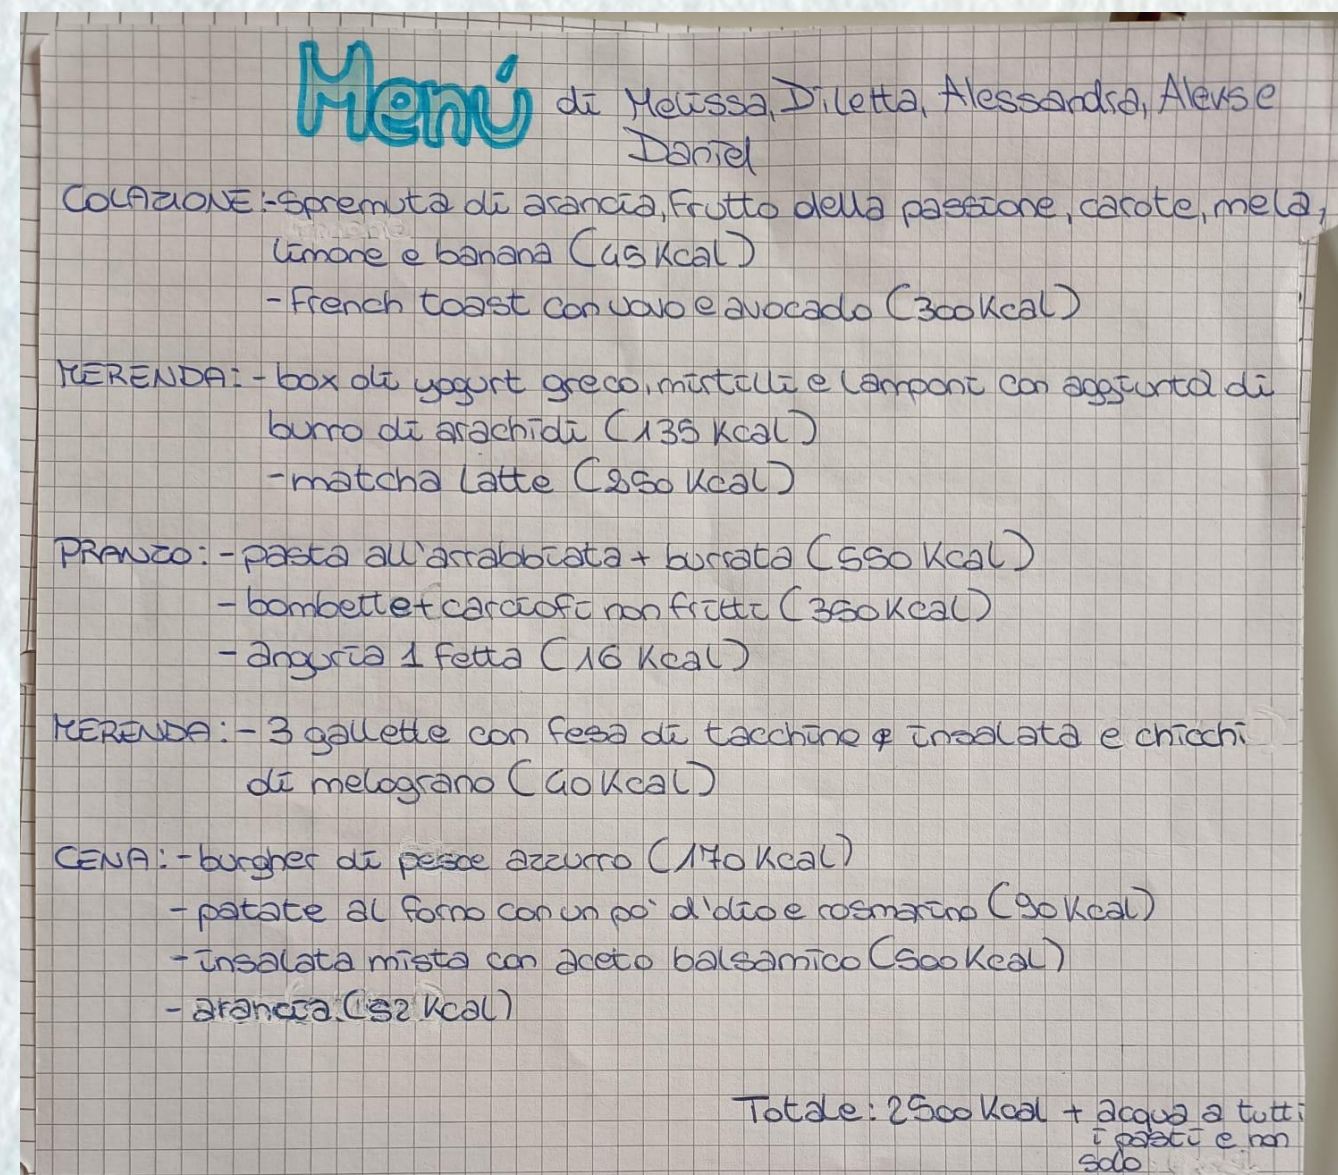 Menú di Melissa, Diletta, Alessandra, Alevse
Daniel
COLAZIONE:-Spremuta di arancia, frutto della passione, carote, mela,
limone e banana (45 Kcal)
-French toast con uovo e avocado (300 Kcal)
MERENDA:-box di yogurt greco, mirtilli e lamponi con aggiunta di
burro di arachidi (135 Kcal)
-matcha latte (250 Kcal)
PRANZO:-pasta all'arrabbiata + burrata (550 Kcal)
-bombette+carciofi non fritti (350 Kcal)
-anguria 1 fetta (16 Kcal)
MERENDA:-3 gallette con fesa di tacchino e insalata e chicchi
di melograno (40 Kcal)
CENA:-burgher di pesce azzurro (170 Kcal)
-patate al forno con un po' d'olio e rosmarino (90 Kcal)
-insalata mista con aceto balsamico (500 Kcal)
-arancia (52 Kcal)
Totale: 2500 Kcal + acqua a tutti
i pasti e non
solo